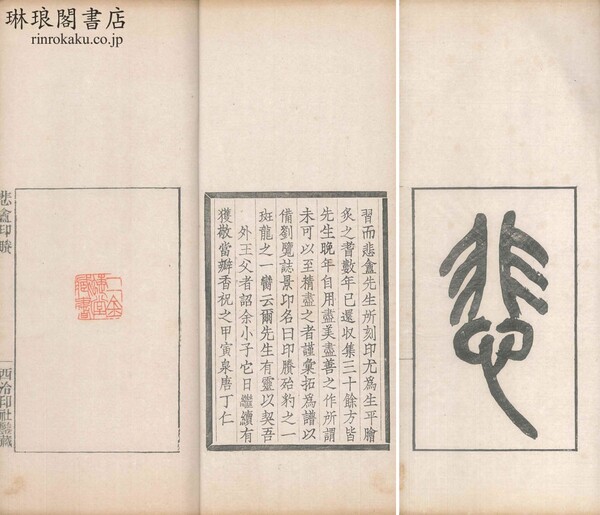 琳琅閣書店
rinrokaku.co.jp
悲
習而悲盦先生所刻印尤為生平膾
炙之耆數年已還收集三十餘方皆
先生晚年自用盡美盡善之作所謂
未可以至精盡之者謹彙拓為譜以
備劉覽誌景印名曰印賸殆豹之一
斑龍之一臠云爾先生有靈以契吾
外王父者詔余小子它日繼續有
獲敬當瓣香祝之甲寅泉唐丁仁
二金蜨堂藏書
悲盦印賸
西泠印社鑒藏